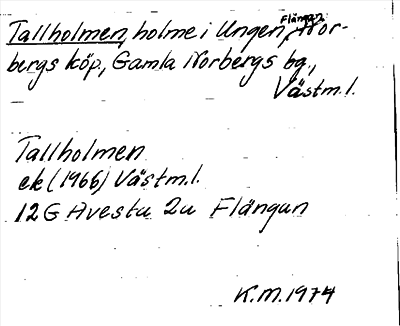 Flängan
Tallholmen, holme i Ungen, Nor-
bergs köp., Gamla Norbergs bg.,
Västm.l.
Tallholmen
ek (1966) Västm.l.
12G Avesta 2a Flängan
K.M. 1974